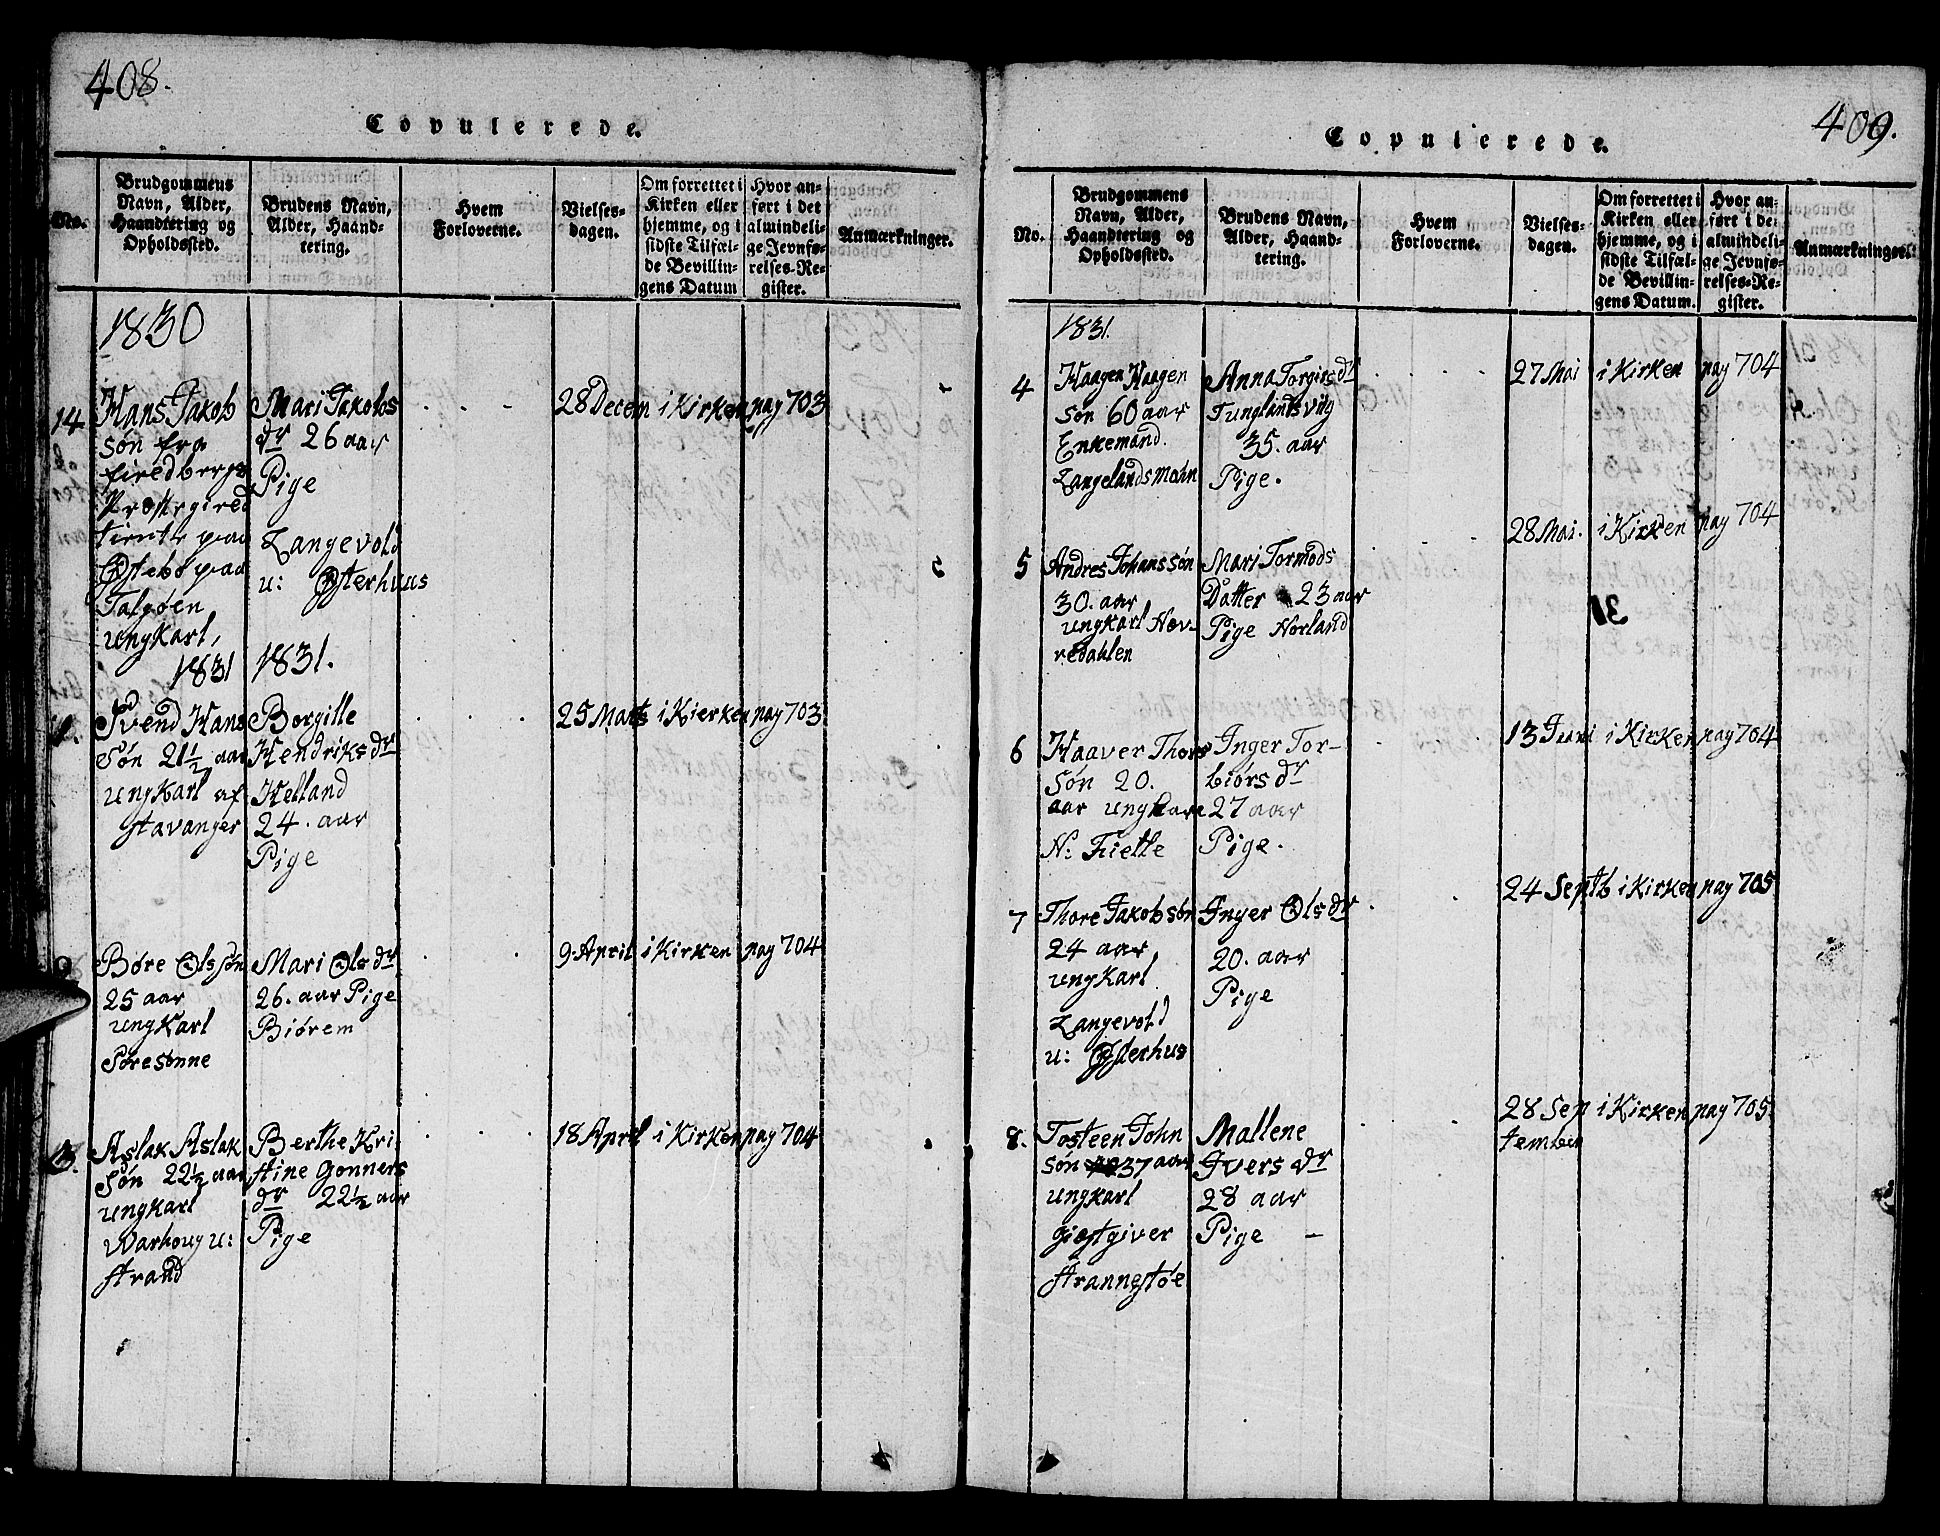 408.
Copulerede.
No.
Brudgommens
Navn, Alder,
Haandtering og
Opholdssted.
Brudens Navn,
Alder, Haand-
tering.
Hvem
Forloverne.
Vielses-
dagen.
Om forrettet i
Kirken eller
hjemme, og i
sidste Tilfæl-
de Bevillin-
gens Datum
Hvor an-
ført i det
almindeli-
ge Jevnfø-
relses-Re-
gister.
Anmærkninger.
1830
14
Hans Jakob
søn fra
Præstegield
tiente paa
Østebø paa
Talgøen
ungKarl,
Mari Jakobs
dr 26 aar
Pige
Langevold
u: Østerhuus
28 Decem
i Kirken
pag 703
1831
1831.
1.
Svend Hans
Søn 21½ aar
ungKarl af
Stavanger
Borgille
Hendriks dr
Helland
24. aar
Pige
25 Marts
i Kierken
pag 703
2
Børe Olssøn
25 aar
ungKarl
Søresønne
Mari Ols dr
26. aar Pige
Biørem
9. April
i Kirken
pag 704
3.
Aslak Aslak
Søn 22½ aar
ungkarl
Warhoug u:
Strand
Berthe Kri
stine Gonners
dr 22½ aar
Pige
18 April
i Kirken
pag 704
409.
Copulerede.
No.
Brudgommens
Navn, Alder,
Haandtering og
Opholdssted.
Brudens Navn,
Alder, Haand-
tering.
Hvem
Forloverne.
Vielses-
dagen.
Om forrettet i
Kirken eller
hjemme, og i
sidste Tilfæl-
de Bevillin-
gens Datum.
Hvor an-
ført i de
almindeli-
ge Jevnfø-
relses-Re-
gister.
Anmærkninger.
1831.
4
Haagen Haagen
søn 60 aar
Enkemand.
Langelandsmahn
Anna Torgirs dr
Tunglandsvig
35. aar
Pige.
27 Mai
i Kirken
pag 704
5
Andres Johanssøn
30. aar
ungkarl Høv-
redahlen
Mari Tormods
Datter 23 aar
Pige Norland
28 Mai.
i Kirken
pag 704
31
6
Haaver Thors
søn 20.
aar ungkarl
N: Tiette
Inger Tor-
biørs dr
27 aar
Pige.
13 Juni
i Kirken
pag 704
7
Thore Jakobsøn
24 aar
ungKarl
Langevold
u: Østerhus
Inger Ols dr
20. aar
Pige
24 Septb
i Kirken
pag 705
8.
Tosteen John
søn 37 aar
ungkarl
giæstgiver
Strannestøe
Mallene
Ivers dr
28 aar
Pige –
28 Sep
tember
i Kirken
pag 705.